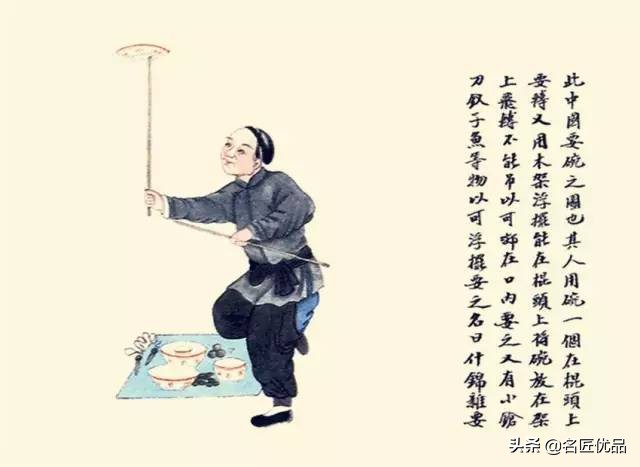 此中國耍碗之圖也其人用碗一個在棍頭上
耍轉又用木架浮擺能在棍頭上將碗放在架
上飛轉不能吊以可在口內耍之又有小鎗
刀釵子魚等物以可浮擺耍之名曰什錦雜耍
头条 @名匠优品